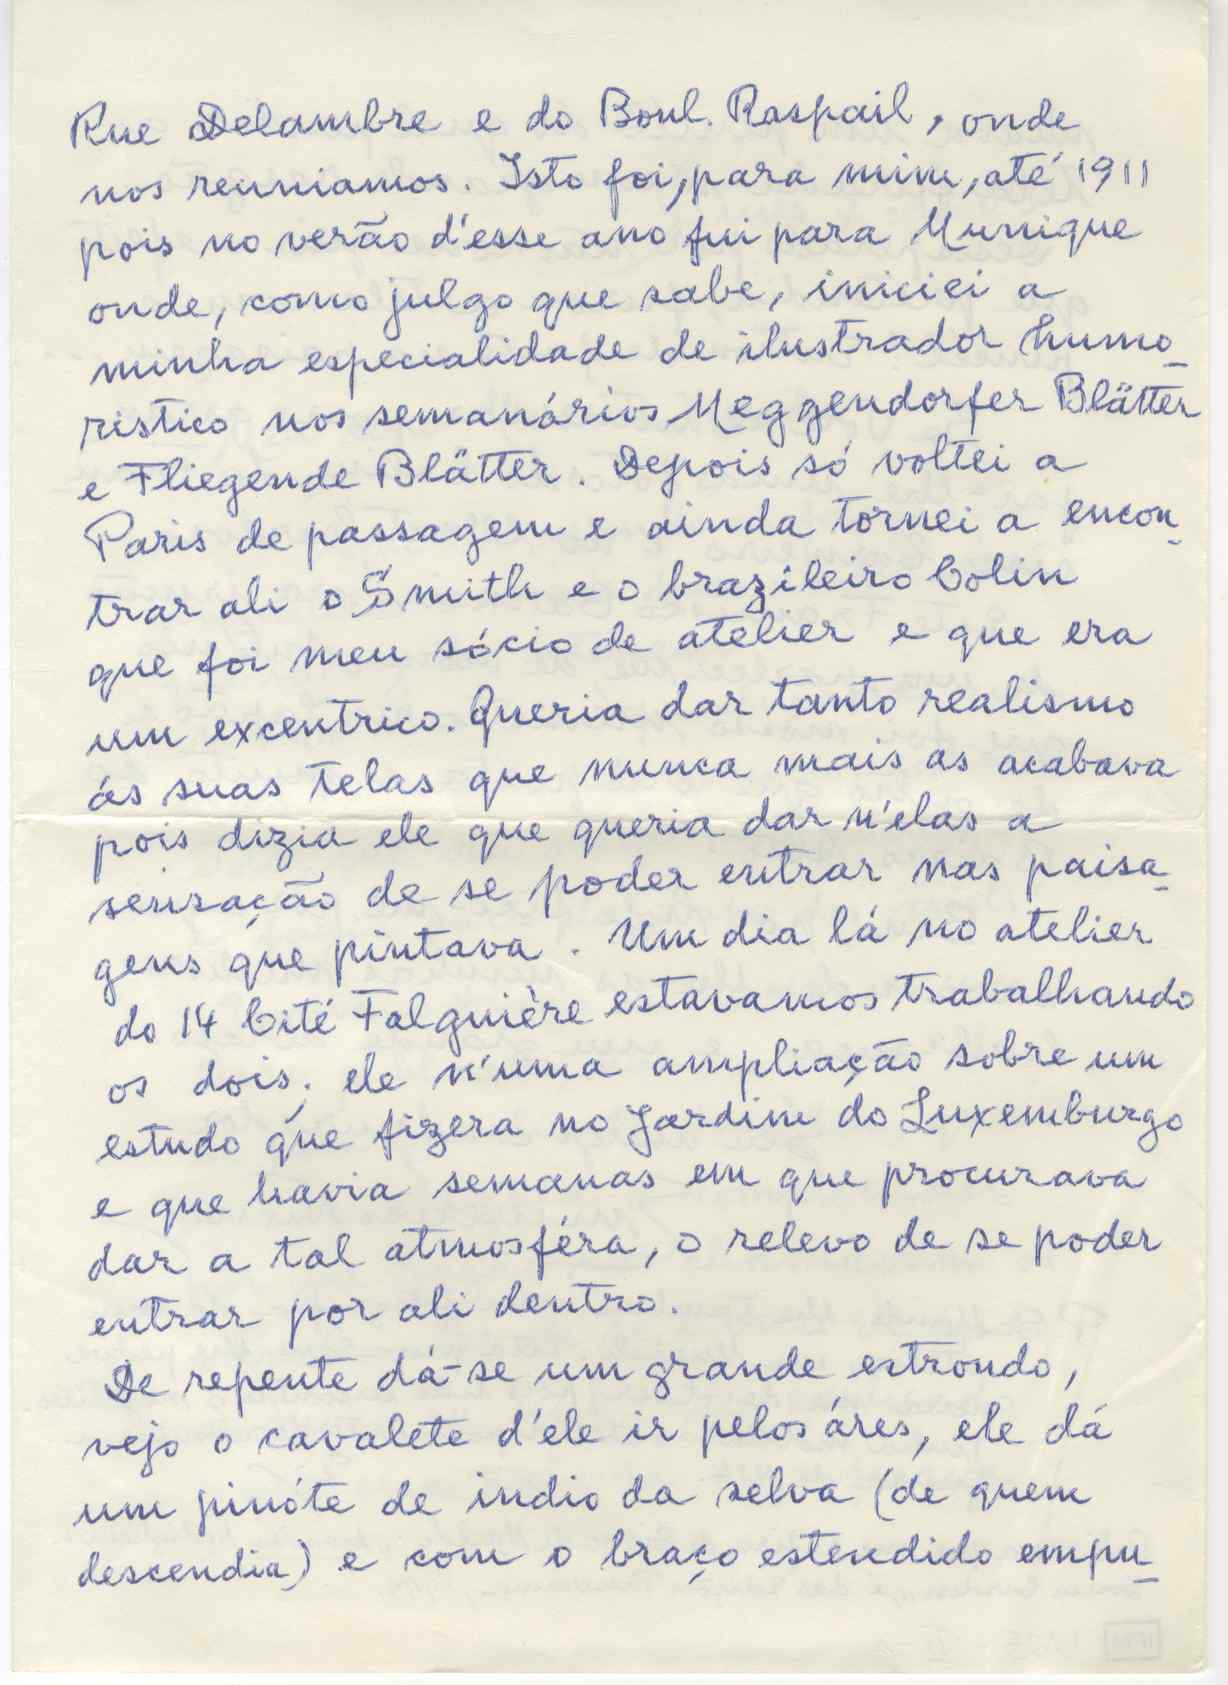 Rue Delambre e do Boul. Raspail, onde
nos reuniamos. Isto foi, para mim, até 1911
pois no verão d'esse ano fui para Munique
onde, como julgo que sabe, iniciei a
minha especialidade de ilustrador humo-
ristico nos semanários Meggendorfer Blätter
e Fliegende Blätter. Depois só voltei a
Paris de passagem e ainda tornei a encon-
trar ali o Smith e o brazileiro Colin
que foi meu sócio de atelier e que era
um excentrico. Queria dar tanto realismo
ás suas telas que nunca mais as acabava
pois dizia ele que queria dar n'elas a
sensação de se poder entrar nas paisa-
gens que pintava. Um dia lá no atelier
do 14 Cité Falguière estavamos trabalhando
os dois; ele n'uma ampliação sobre um
estudo que fizera no Jardim do Luxemburgo
e que havia semanas em que procurava
dar a tal atmosféra, o relevo de se poder
entrar por ali dentro.
De repente dá-se um grande estrondo,
vejo o cavalete d'ele ir pelos áres, ele dá
um pinóte de indio da selva (de quem
descendia) e com o braço estendido empu-